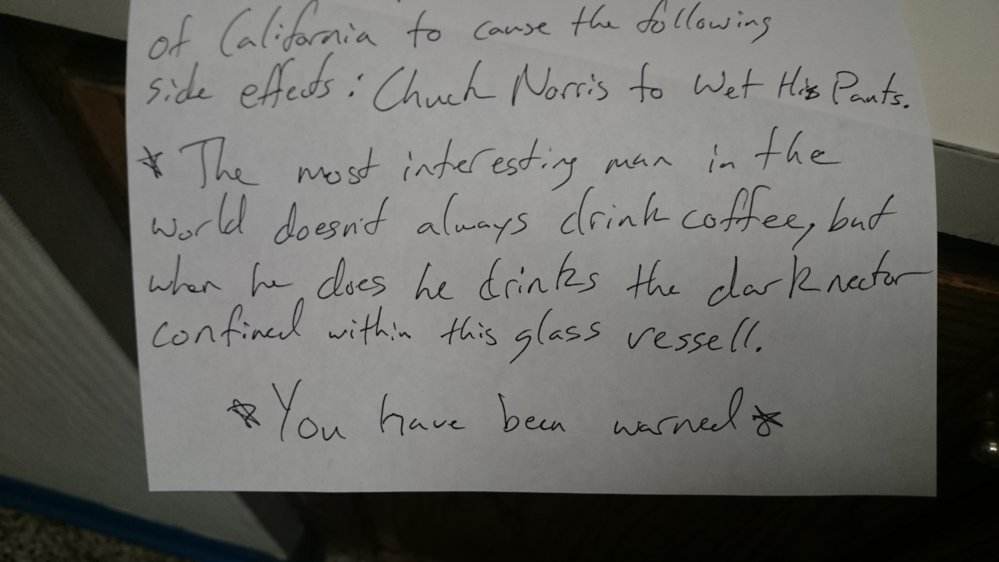 of California to cause the following
side effects: Chuck Norris to Wet His Pants.
* The most interesting man in the
world doesn't always drink coffee, but
when he does he drinks the dark nector
confined within this glass vessell.
*You have been warned*